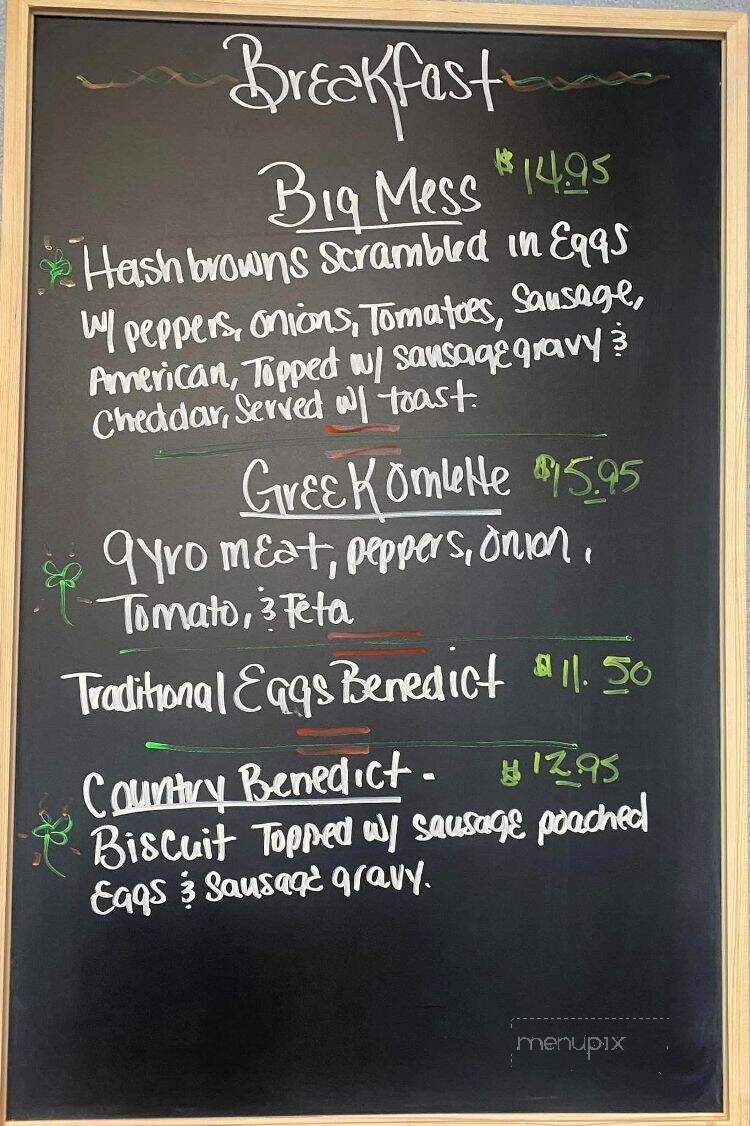 Breakfast
Big Mess $14.95
Hashbrowns scrambled in Eggs
w/ peppers, onions, Tomatoes, Sausage,
American, Topped w/ sausage gravy &
Cheddar, Served w/ toast.
Greek Omlette $15.95
gyro meat, peppers, onion,
Tomato, & Feta
Traditional Eggs Benedict $11.50
Country Benedict - $12.95
Biscuit Topped w/ sausage poached
Eggs & Sausage gravy.
menupix